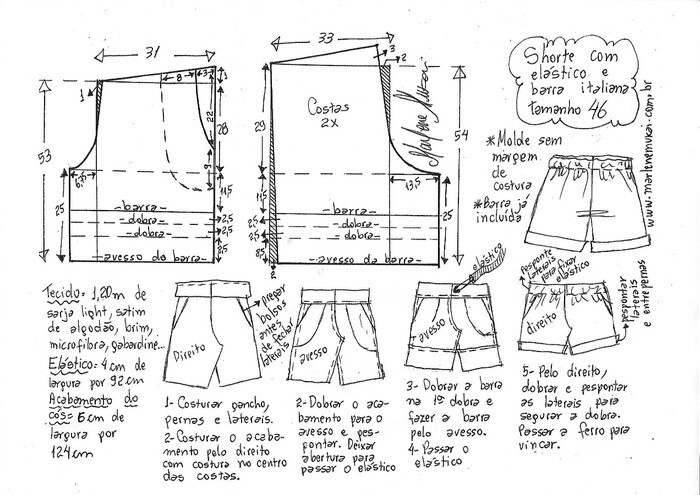 31
33
Shorte com
elástico e
barra italiana
tamanho 46
www.marlenemukai.com.br
8
3
1
1
22
28
53
6,25
9
11,5
25
-barra-
-dobra-
-dobra-
-avesso da barra-
2,5
2,5
3
2
Costas
2X
Marlene Mukai
29
54
13,5
11,5
25
-barra-
-dobra-
-dobra-
-avesso da barra-
2,5
2,5
2
25
*Molde sem
margem
de
costura
*Barra já
incluída
Tecido= 1,20m de
sarja light, satim
de algodão, brim,
microfibra, gabardine...
Elástico= 4cm de
largura por 92cm
Acabamento do
cós= 6cm de
largura por
124cm
Direito
Prepar
bolsos
antes
de fechar
laterais
avesso
elástico
avesso
Pesponte
laterais
para fixar
elástico
direito
pespontar
laterais
e entrepernas
1- Costurar gancho,
pernas e laterais.
2- Costurar o acaba-
mento pelo direito
com costura no centro
das costas.
2- Dobrar o aca-
bamento para o
avesso e pes-
pontar. Deixar
abertura para
passar o elástico
3- Dobrar a barra
na 1ª dobra e
fazer a barra
pelo avesso.
4- Passar o
elástico
5- Pelo direito,
dobrar e pespontar
as laterais para
segurar a dobra.
Passar a ferro para
vincar.